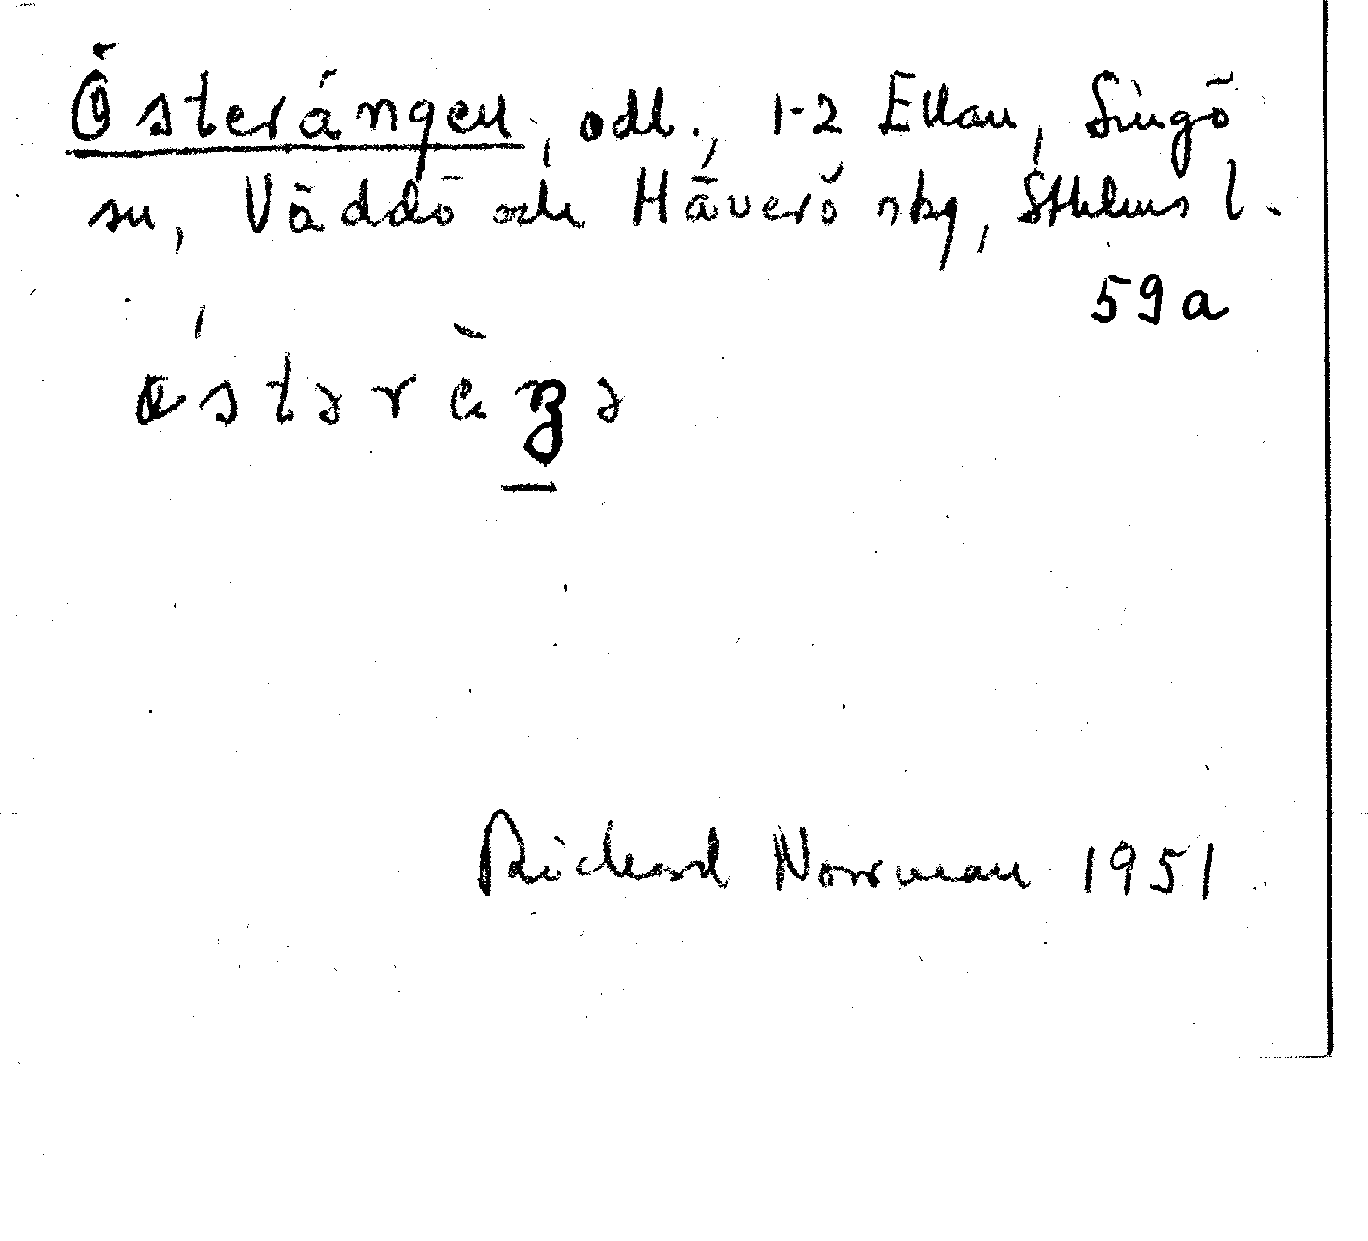 Österängen, odl., 1-2 Ellan, Singö
sn, Väddö och Häverö skg, Sthlms l.
59a
Richard Norrman 1951